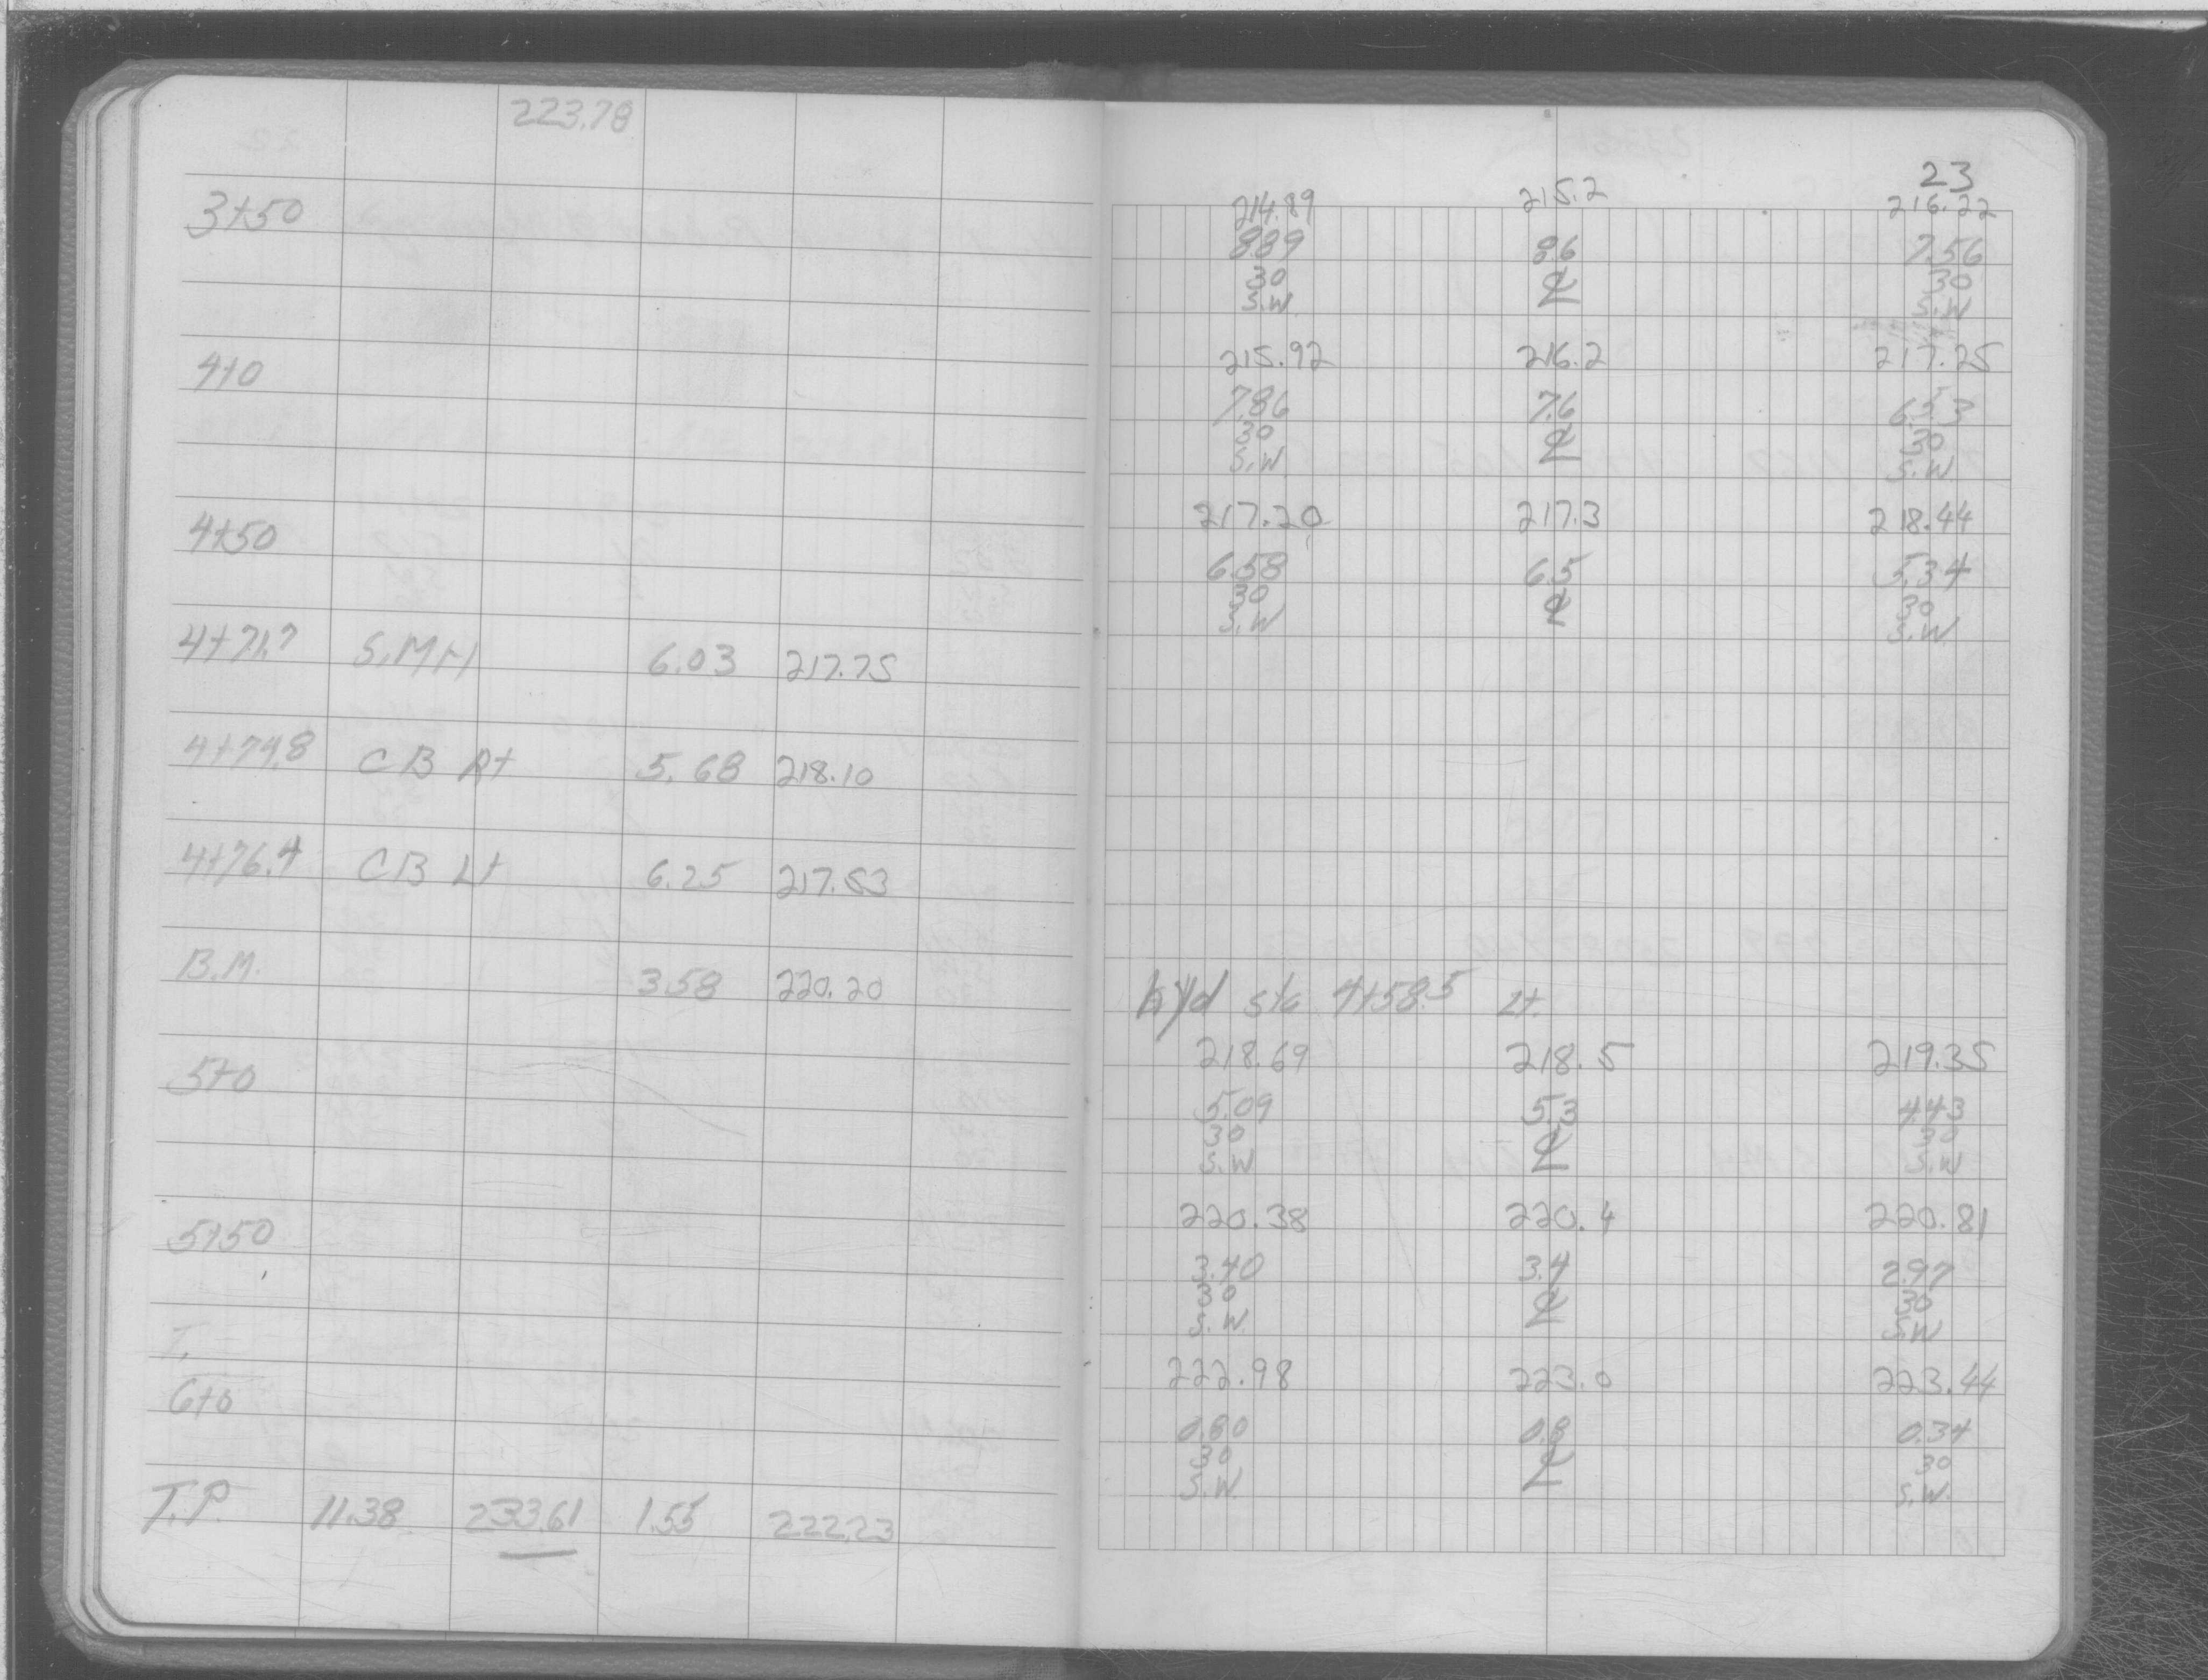 223.78
3+50
4+0
4+50
4+71.7 S.MH 6.03 217.75
4+74.8 CB Rt 5.68 218.10
4+76.4 CB Lt 6.25 217.53
B.M. 3.58 220.20
5+0
5+50
T.
6+0
T.P. 11.38 233.61 1.55 222.23
23
214.89 215.2 216.22
8.89 8.6 7.56
30 ℄ 30
S.W. S.W
215.92 216.2 217.25
7.86 7.6 6.53
30 ℄ 30
S.W. S.W.
217.20 217.3 218.44
6.58 6.5 5.34
30 ℄ 30
S.W S.W
hyd sta 4+58.5 Lt.
218.69 218.5 219.35
5.09 5.3 4.43
30 ℄ 30
S.W S.W
220.38 220.4 220.81
3.40 3.4 2.97
30 ℄ 30
S.W. S.W
222.98 223.0 223.44
0.80 0.8 0.34
30 ℄ 30
S.W. S.W.